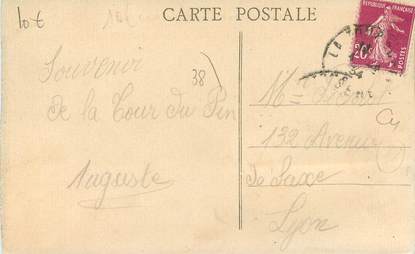 10€
CARTE POSTALE
REPUBLIQUE FRANCAISE
20c
POSTES
38
Souvenir
de la Tour du Pin
Auguste
132 Avenue
de Saxe
Lyon